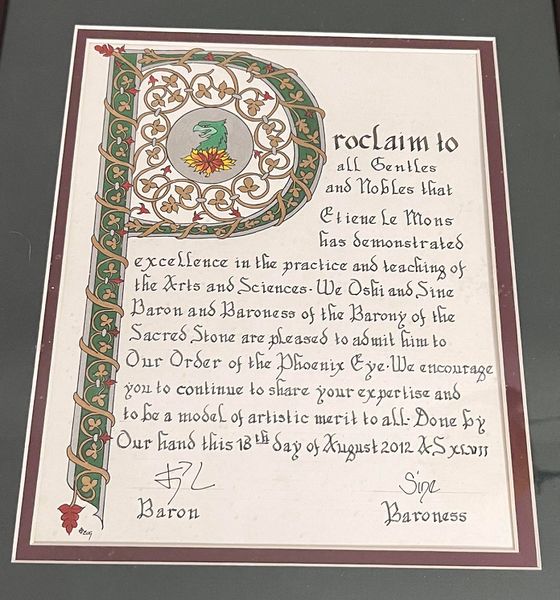 Proclaim to
all Gentles
and Nobles that
Etiene Le Mons
has demonstrated
excellence in the practice and teaching of
the Arts and Sciences. We Oshi and Sine
Baron and Baroness of the Barony of the
Sacred Stone are pleased to admit him to
Our Order of the Phoenix Eye. We encourage
you to continue to share your expertise and
to be a model of artistic merit to all. Done by
Our hand this 18th day of August 2012 A.S xlvii
Sine
Baron Baroness